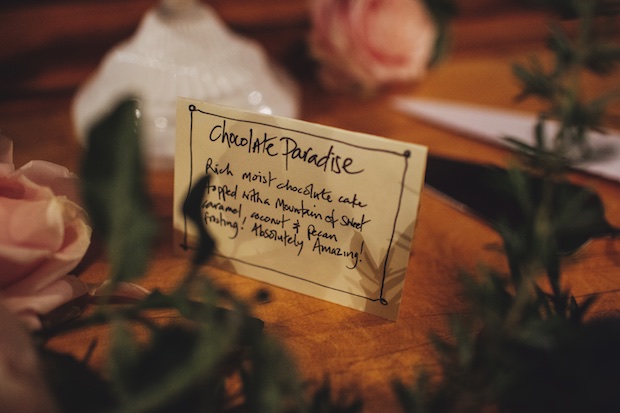 Chocolate Paradise
Rich moist chocolate cake
topped with a Mountain of sweet
caramel, coconut & Pecan
frosting! Absolutely Amazing!